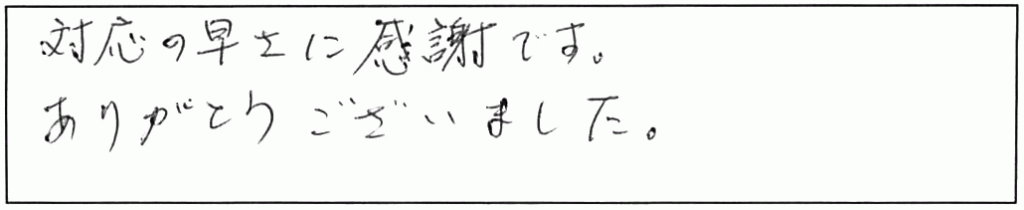 対応の早さに感謝です。
ありがとうございました。